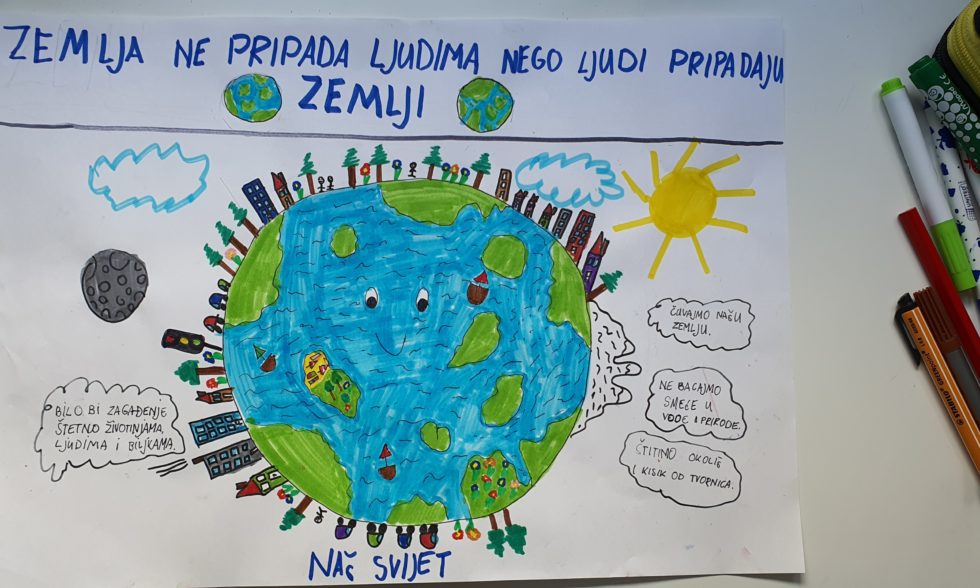 ZEMLJA NE PRIPADA LJUDIMA NEGO LJUDI PRIPADAJU
ZEMLJI
ČUVAJMO NAŠU
ZEMLJU.
NE BACAJMO
SMEĆE U
VODE I PRIRODE.
ŠTITIMO OKOLIŠ
I KISIK OD TVORNICA.
BILO BI ZAGAĐENJE
ŠTETNO ŽIVOTINJAMA,
LJUDIMA I BILJKAMA.
NAŠ SVIJET